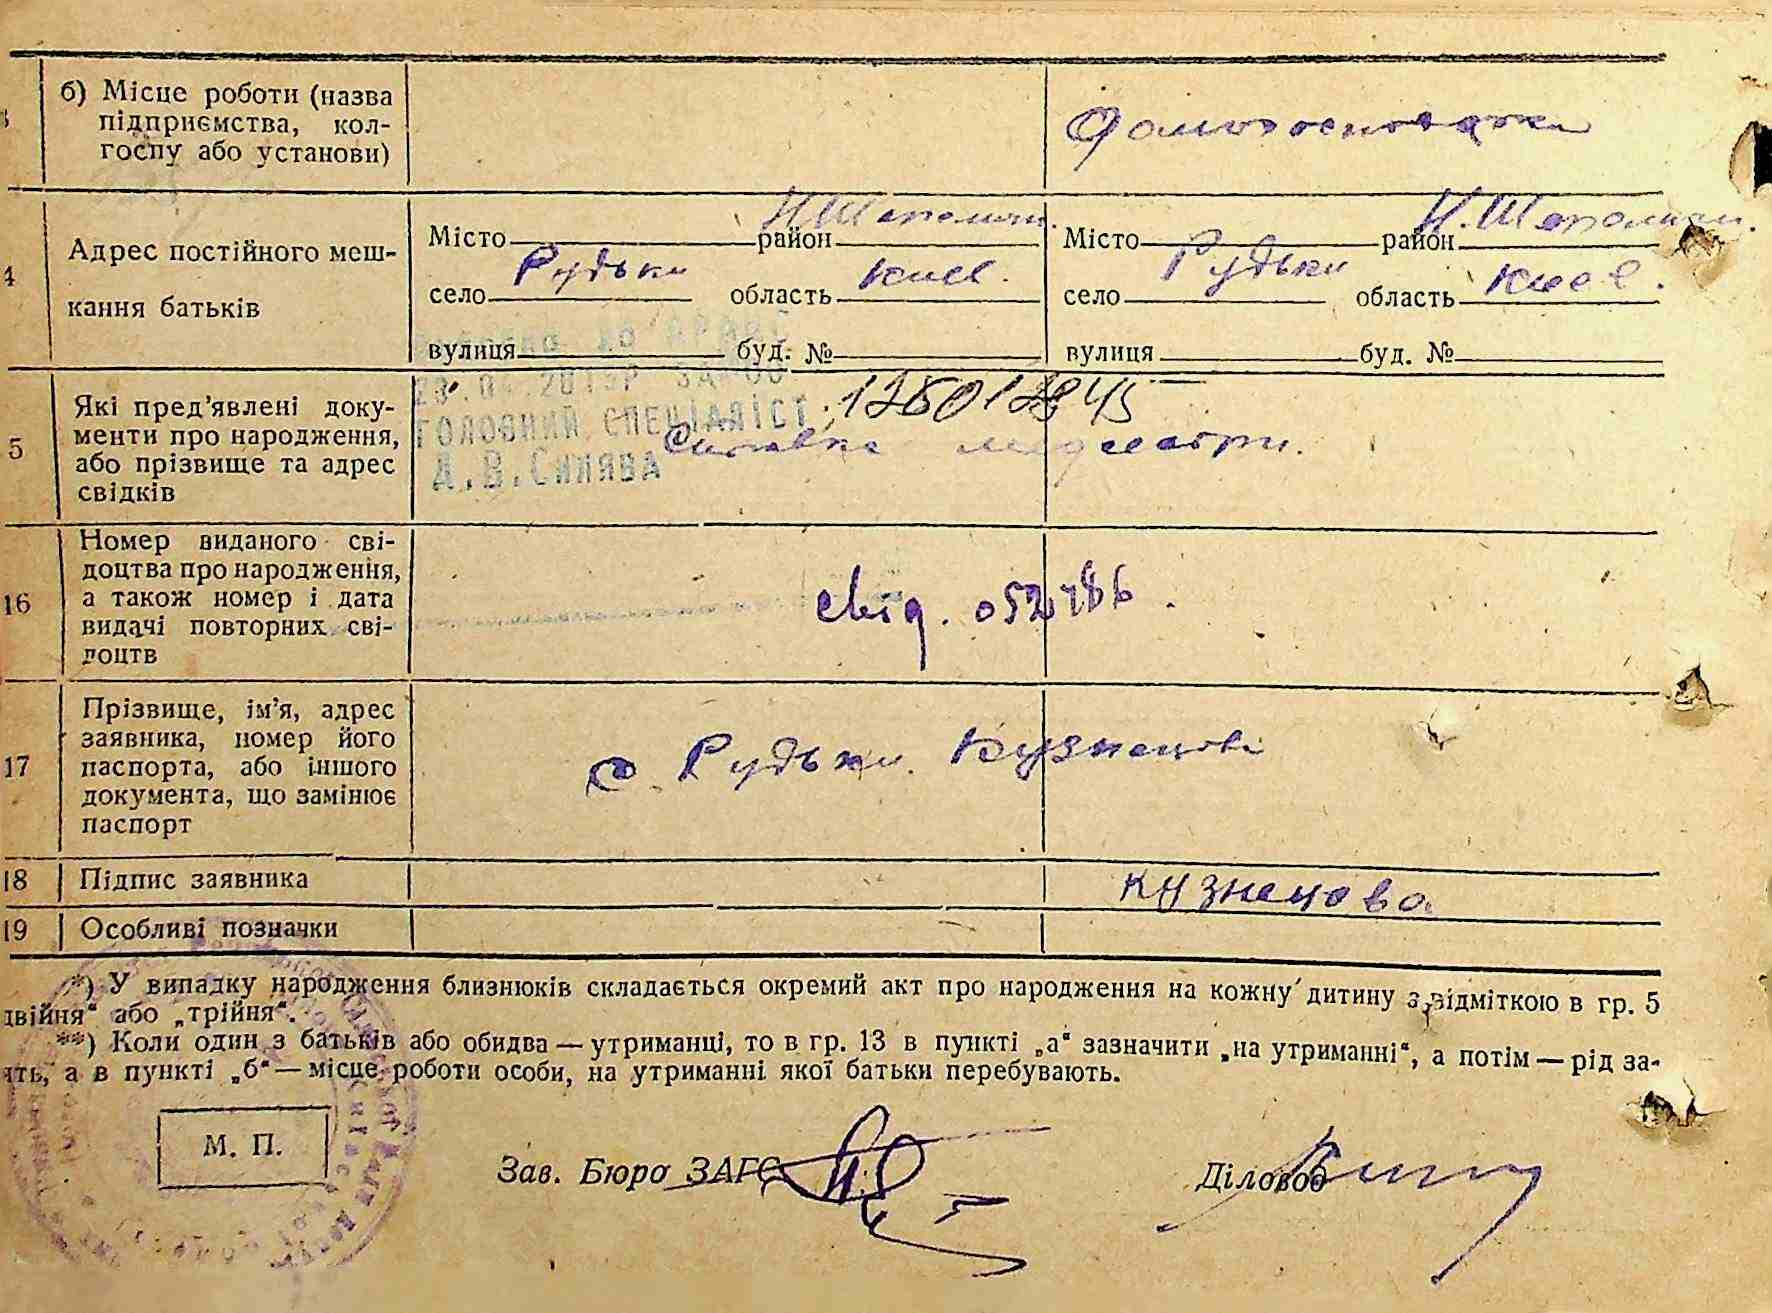 б) Місце роботи (назва
підприємства, кол-
госпу або установи)
Домогосподарка
4
Адрес постійного меш-
кання батьків
Місто район Н.Шаполит.
село Рудьки область Киев.
вулиця буд. №
Місто район Н.Шаполит.
село Рудьки область Киев.
вулиця буд. №
ГОЛОВНИЙ СПЕЦІАЛІСТ
А.В.Силява
5
Які пред'явлені доку-
менти про народження,
або прізвище та адрес
свідків
Справка медсестри.
16
Номер виданого сві-
доцтва про народження,
а також номер і дата
видачі повторних сві-
доцтв
свід. 052786.
17
Прізвище, ім'я, адрес
заявника, номер його
паспорта, або іншого
документа, що замінює
паспорт
с. Рудьки. Кузнецова
18 Підпис заявника
Кузнецова
19 Особливі позначки
*) У випадку народження близнюків складається окремий акт про народження на кожну дитину з відміткою в гр. 5
двійня“ або „трійня“.
**) Коли один з батьків або обидва — утриманці, то в гр. 13 в пункті „а“ зазначити „на утриманні“, а потім — рід за-
ять, а в пункті „б“ — місце роботи особи, на утриманні якої батьки перебувають.
М. П.
Зав. Бюро ЗАГС
Діловод